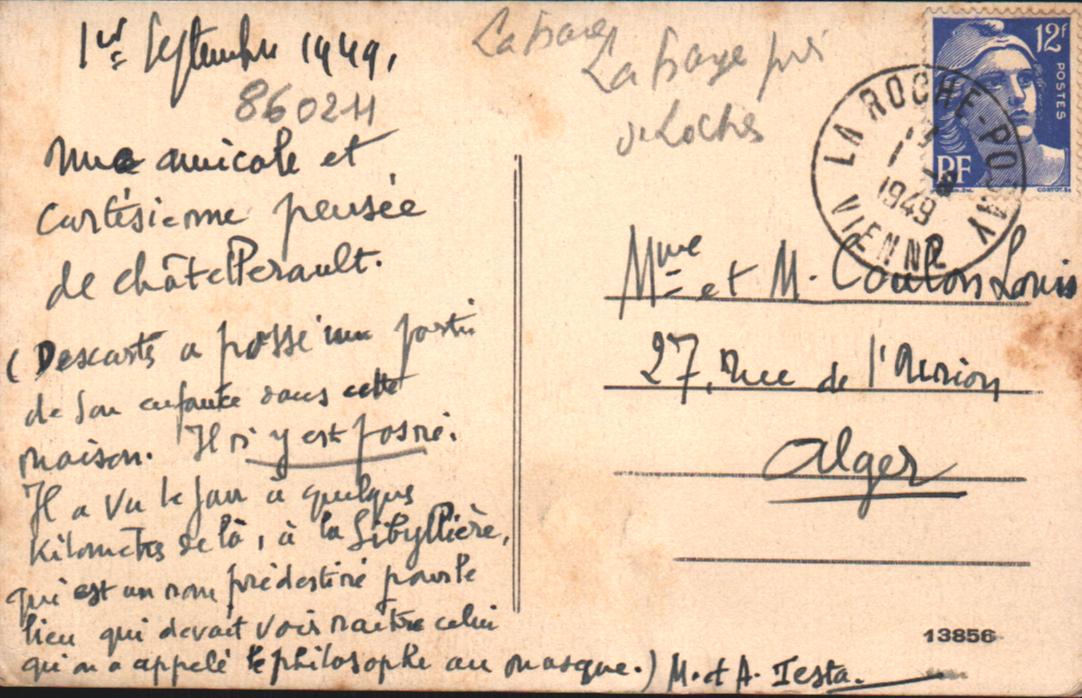 1er Septembre 1949,
860211
une amicale et
cartésienne pensée
de châtellerault.
(Descartes a passé une partie
de son enfance dans cette
maison. Il n'y est pas né.
Il a vu le jour à quelques
kilomètres de là, à la Sibyllière,
qui est un nom prédestiné pour le
lieu qui devait voir naître celui
qu'on a appelé le philosophe au masque.) M. et A. Testa.
La haye
La haye près
de Loches
12F
POSTES
RF
LA ROCHE-POSAY
1949
VIENNE
Mme et M. Coulon Louis
27, Rue de l'Union
Alger
13856